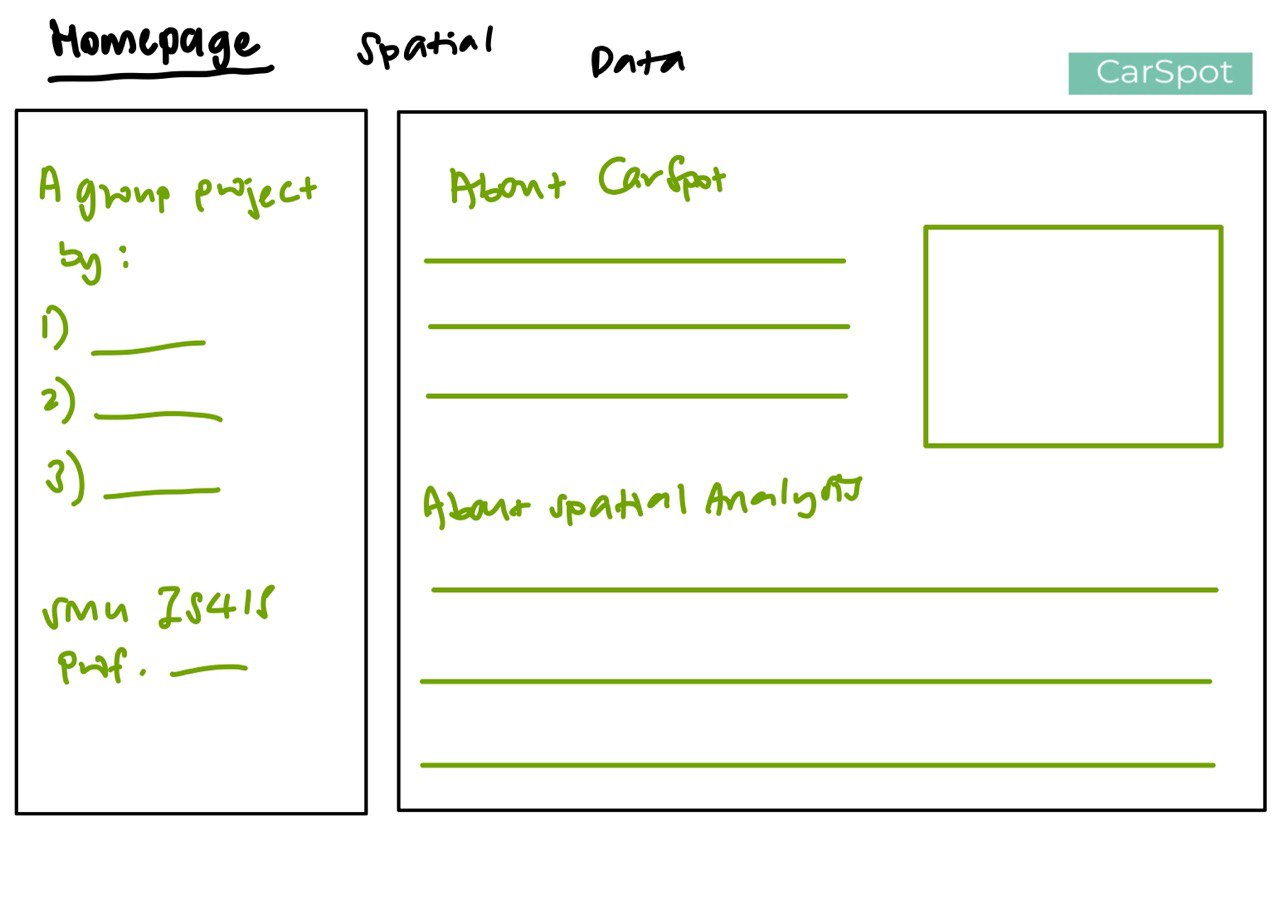 Homepage Spatial Data
CarSpot
A group project
by :
1)
2)
3)
SMU IS415
Prof.
About CarSpot
About Spatial Analysis